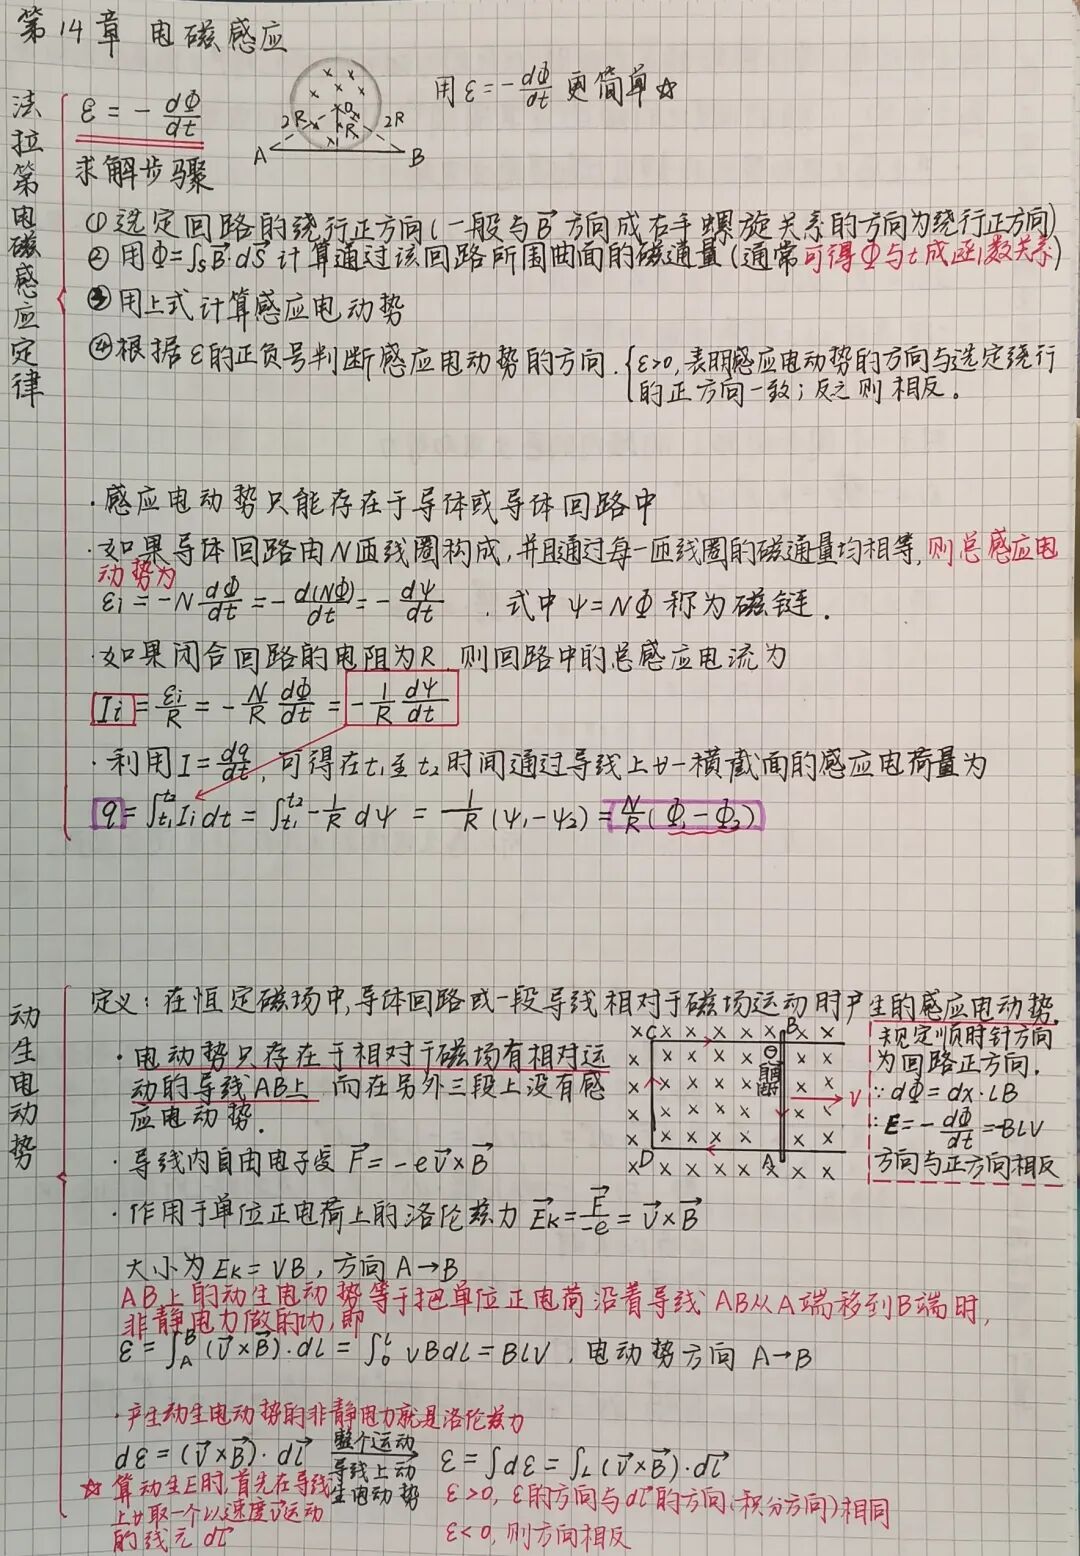 第14章 电磁感应
法拉第电磁感应定律
ε = - dΦ/dt
2R R 2R
A B
用 ε = - dΦ/dt 更简单☆
求解步骤
①选定回路的绕行正方向(一般与B⃗方向成右手螺旋关系的方向为绕行正方向)
②用Φ=∫s B⃗·dS⃗ 计算通过该回路所围曲面的磁通量(通常可得Φ与t成函数关系)
③用上式计算感应电动势
④根据ε的正负号判断感应电动势的方向.{ε>0,表明感应电动势的方向与选定绕行
的正方向一致;反之则相反。
·感应电动势只能存在于导体或导体回路中
·如果导体回路由N匝线圈构成,并且通过每一匝线圈的磁通量均相等,则总感应电
动势为
εi = -N dΦ/dt = - d(NΦ)/dt = - dψ/dt . 式中 ψ=NΦ 称为磁链.
·如果闭合回路的电阻为R,则回路中的总感应电流为
Ii = εi/R = - N/R dΦ/dt = - 1/R dψ/dt
·利用I = dq/dt,可得在t₁至t₂时间通过导线上任一横截面的感应电荷量为
q = ∫t₁^t₂ Ii dt = ∫t₁^t₂ - 1/R dψ = 1/R (ψ₁-ψ₂) = N/R (Φ₁-Φ₂)
动生电动势
定义:在恒定磁场中,导体回路或一段导线相对于磁场运动时产生的感应电动势.
·电动势只存在于相对于磁场有相对运
动的导线AB上,而在另外三段上没有感
应电动势.
C B
V
D A
规定顺时针方向
为回路正方向.
∵dΦ=dx·LB
∵E=- dΦ/dt =-BLV
方向与正方向相反
·导线内自由电子受 F⃗ = -e v⃗×B⃗
·作用于单位正电荷上的洛伦兹力 E⃗k = F⃗/-e = v⃗×B⃗
大小为 Ek = VB, 方向 A→B
AB上的动生电动势等于把单位正电荷沿着导线AB从A端移到B端时,
非静电力做的功,即
ε = ∫A^B (v⃗×B⃗)·dl = ∫0^L vBdl = BLV , 电动势方向 A→B
·产生动生电动势的非静电力就是洛伦兹力
dε = (v⃗×B⃗)·dl⃗ 整个运动导线上动生电动势 → ε = ∫dε = ∫L (v⃗×B⃗)·dl⃗
☆ 算动生E时,首先在导线
上任取一个以速度v⃗运动
的线元 dl⃗
ε>0, ε的方向与dl⃗的方向(积分方向)相同
ε<0, 则方向相反